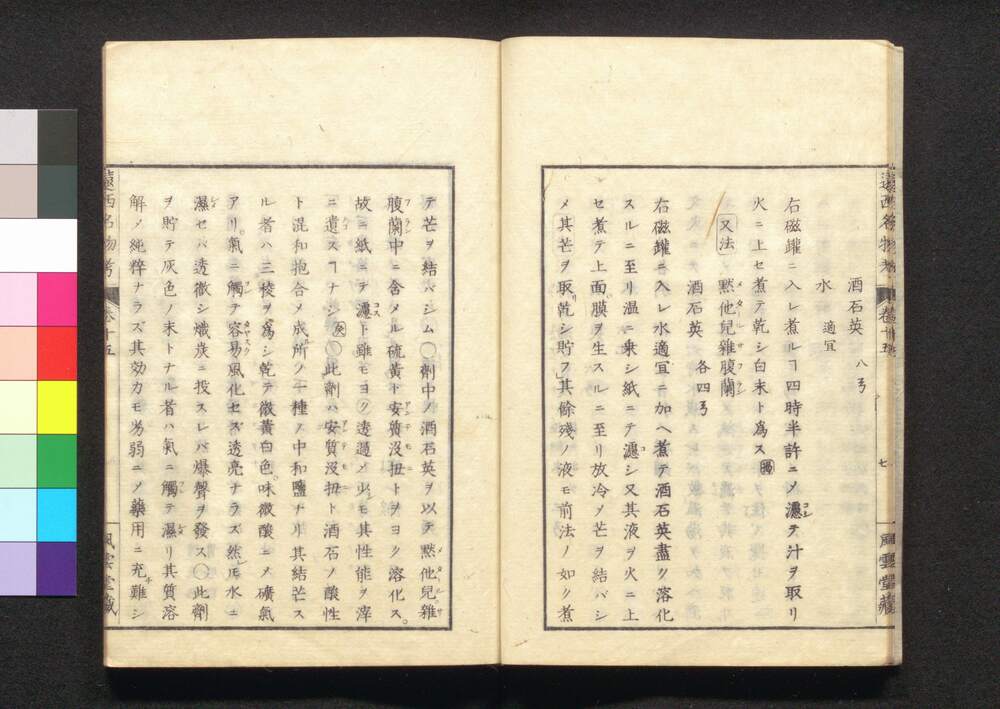 遠西名物考 卷十五 七 風雲堂藏
酒石英 八弓
水 適宜
右磁罐ニ入レ煮ルヿ四時半許ニメ濾テ汁ヲ取リ
火ニ上セ煮テ乾シ白末ト爲ス
又法 黙他兒雑腹蘭
酒石英 各四弓
右磁罐ニ入レ水適宜ニ加ヘ煮テ酒石英盡ク溶化
スルニ至リ温ニ乗シ紙ニテ濾シ又其液ヲ火ニ上
セ煮テ上面膜ヲ生スルニ至リ放冷メ芒ヲ結バシ
メ其芒ヲ取乾シ貯フ其餘殘ノ液モ前法ノ如ク煮
テ芒ヲ結バシム〇劑中ノ酒石英ヲ以テ黙他兒雑
腹蘭中ニ含メル硫黄ト安質没扭トヲヨク溶化ス。
故ニ紙ニテ濾ト雖モヨク透過メ少モ其性能ヲ滓
ニ遺スヿナシ〇此劑ハ安質没扭ト酒石ノ酸性
ト混和抱合メ成所ノ一種ノ中和鹽ナリ其結芒ス
ル者ハ三稜ヲ爲シ乾テ微黄白色。味微酸ニメ礦氣
アリ。氣ニ觸テ容易風化セズ透亮ナラズ然𪜈水ニ
濕セバ透徹シ熾炭ニ投スレバ爆聲ヲ發ス〇此劑
ヲ貯テ灰色ノ末トナル者ハ氣ニ觸テ濕リ其質溶
解メ純粹ナラズ其効力モ劣弱ニメ藥用ニ充難シ
遠西名物考 卷十五 風雲堂藏